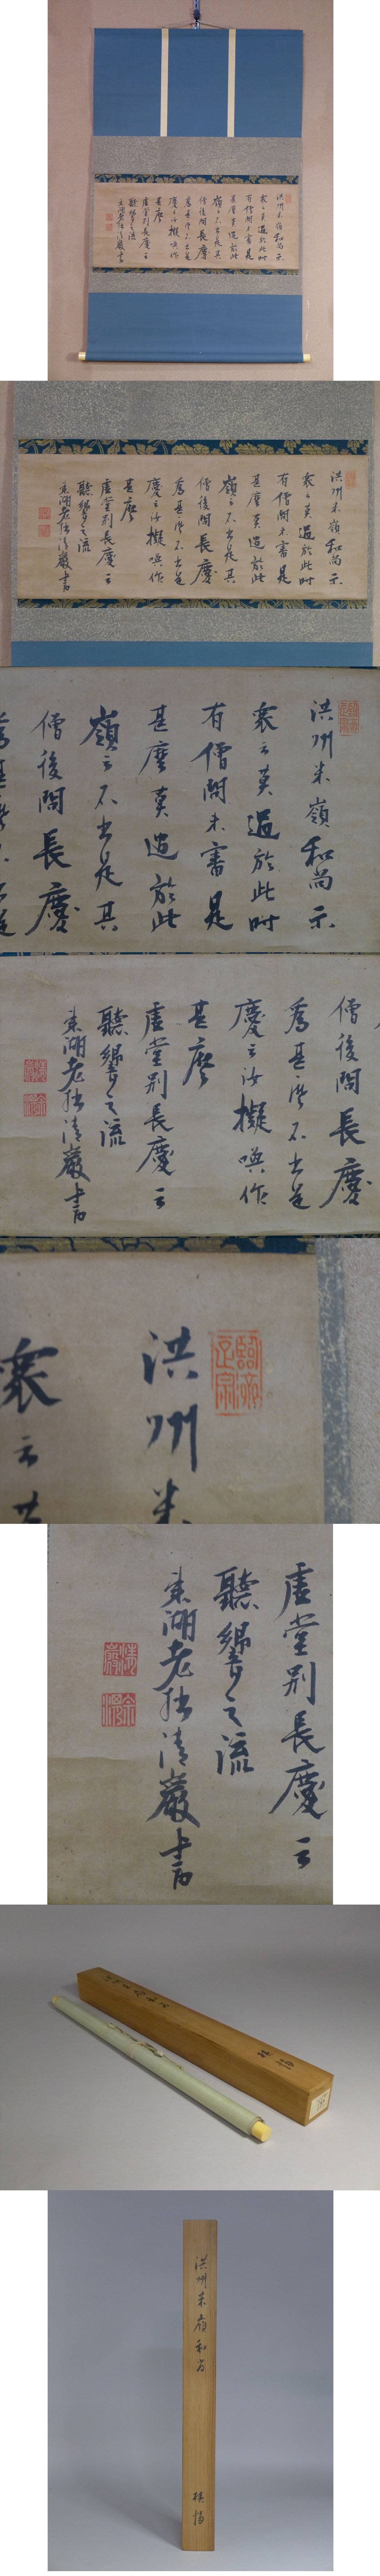 洪州米嶺和尚示
衆云莫過於此时
有僧問未審是
甚麼莫過於此
嶺云不出是其
僧後問長慶
為甚麼不出是
慶云汝擬喚作
甚麼
虚堂別長慶云
聽響之流
東湖老拙清巖書
洪州米嶺和尚
横幅